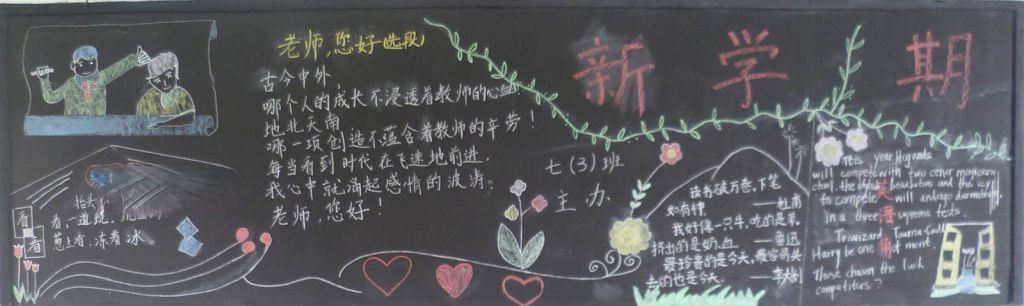 新学期
老师,您好(选段)
古今中外
哪个人的成长不浸透着教师的心血
地北天南
哪一项创造不蕴含着教师的辛劳!
每当看到时代在飞速地前进.
我心中就涌起感情的波涛:
老师,您好!
七(3)班
主办
看
看
抬头
看,一道
着冰
读书破万卷,下笔
如有神 ——杜甫
我好像一只牛,吃的是草,
挤出的是奶、血 ——鲁迅
最珍贵的是今天,最容易失
去的也是今天 ——李大钊
英语角
This year Hogwarts
will compete with two other magicians
to compete will undergo
in a three supreme tests.
Triwizard
Harry be one of
Those chosen the luck
competitors?